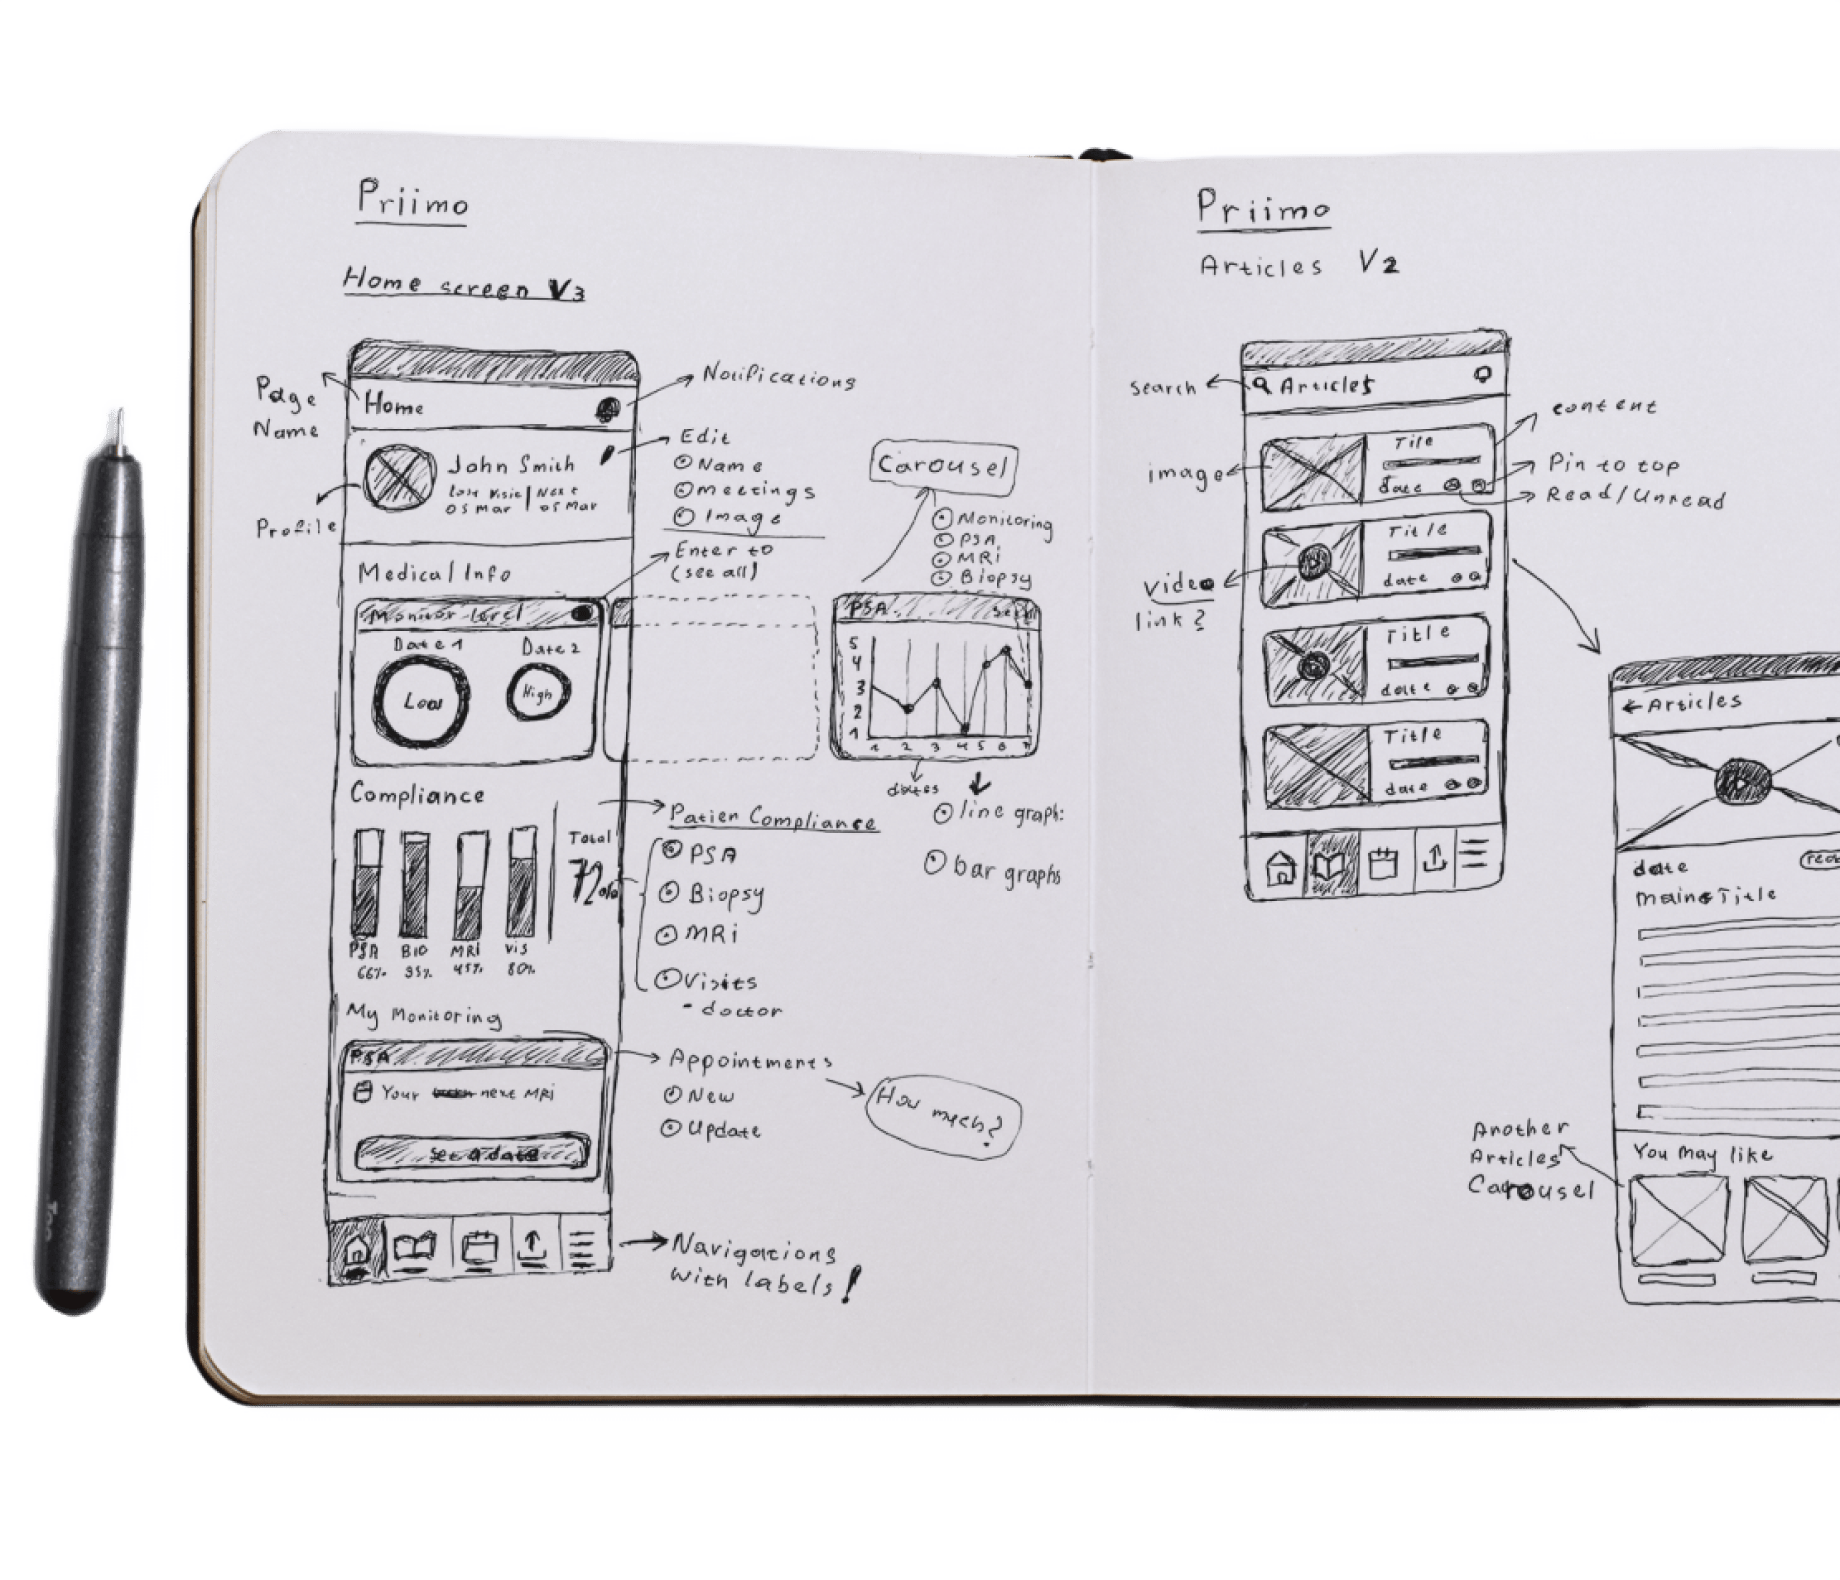 Priimo
Home screen V3
Page
Name
Home
Notifications
Profile
John Smith
Last Visit | Next
05 Mar | 05 Mar
Edit
Name
meetings
Image
Enter to
(see all)
Medical Info
Monitor level
Date 1
Date 2
Low
High
Carousel
Monitoring
PSA
MRi
Biopsy
PSA
5
4
3
2
1
1 2 3 4 5 6 7
dates
line graph:
bar graphs
Compliance
Total
72%
PSA BIO MRI Vis
66% 95% 45% 80%
Patien Compliance
PSA
Biopsy
MRi
Visits
- doctor
My Monitoring
PSA
Your next MRi
Set a date
Appointments
New
Update
How much?
Navigations
with labels!
Priimo
Articles V2
search
Articles
image
Title
date
content
Pin to top
Read/Unread
video
link?
Title
date
Title
date
Title
date
← Articles
date
Main Title
You may like
Another
Articles
Carousel
Too